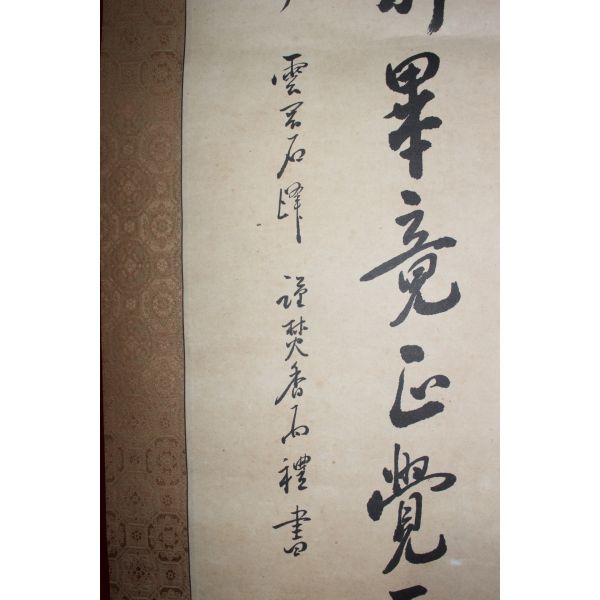 畢竟正覺
雲石禪 謹焚香禮書